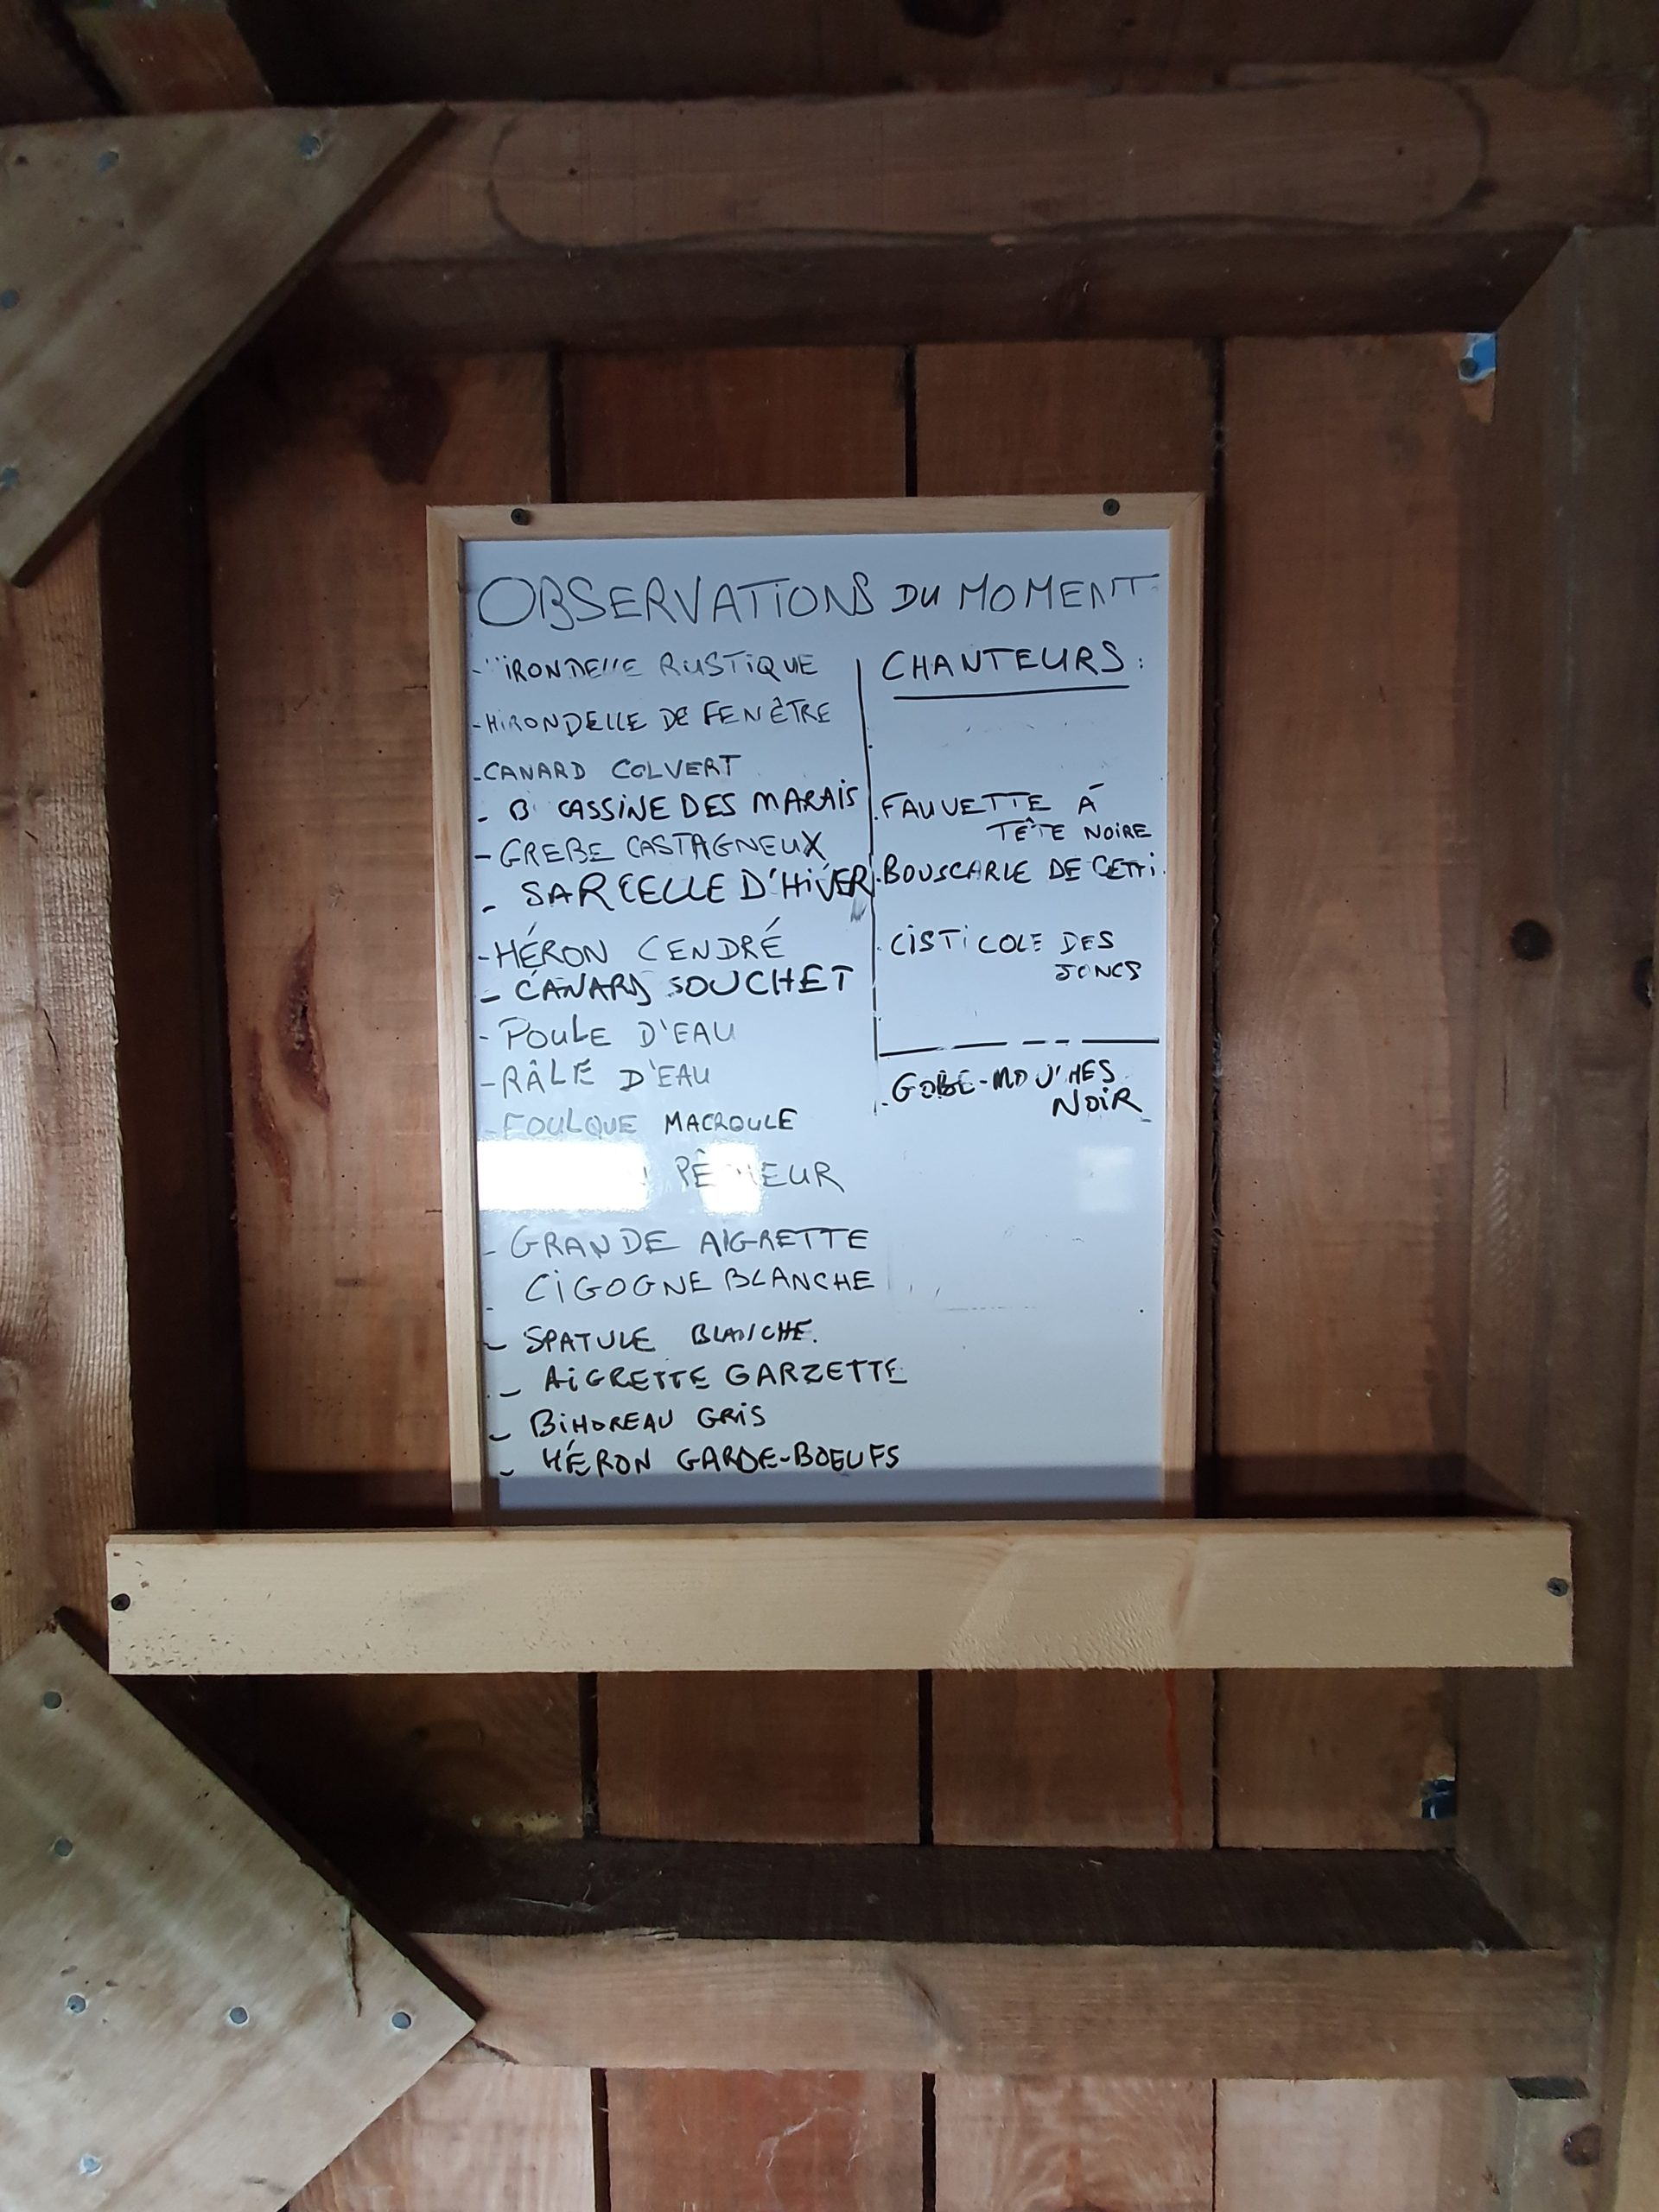 OBSERVATIONS DU MOMENT
- HIRONDELLE RUSTIQUE
- HIRONDELLE DE FENÊTRE
- CANARD COLVERT
- B CASSINE DES MARAIS
- GREBE CASTAGNEUX
- SARCELLE D'HIVER
- HÉRON CENDRÉ
- CANARD SOUCHET
- POULE D'EAU
- RÂLE D'EAU
- FOULQUE MACROULE
PÊCHEUR
- GRANDE AIGRETTE
- CIGOGNE BLANCHE
- SPATULE BLANCHE.
- AIGRETTE GARZETTE
- BIHOREAU GRIS
- HÉRON GARDE-BOEUFS
CHANTEURS :
. FAUVETTE À
TÊTE NOIRE
. BOUSCARLE DE CETTI.
. CISTICOLE DES
JONCS
. GOBE-MOUCHES
NOIR